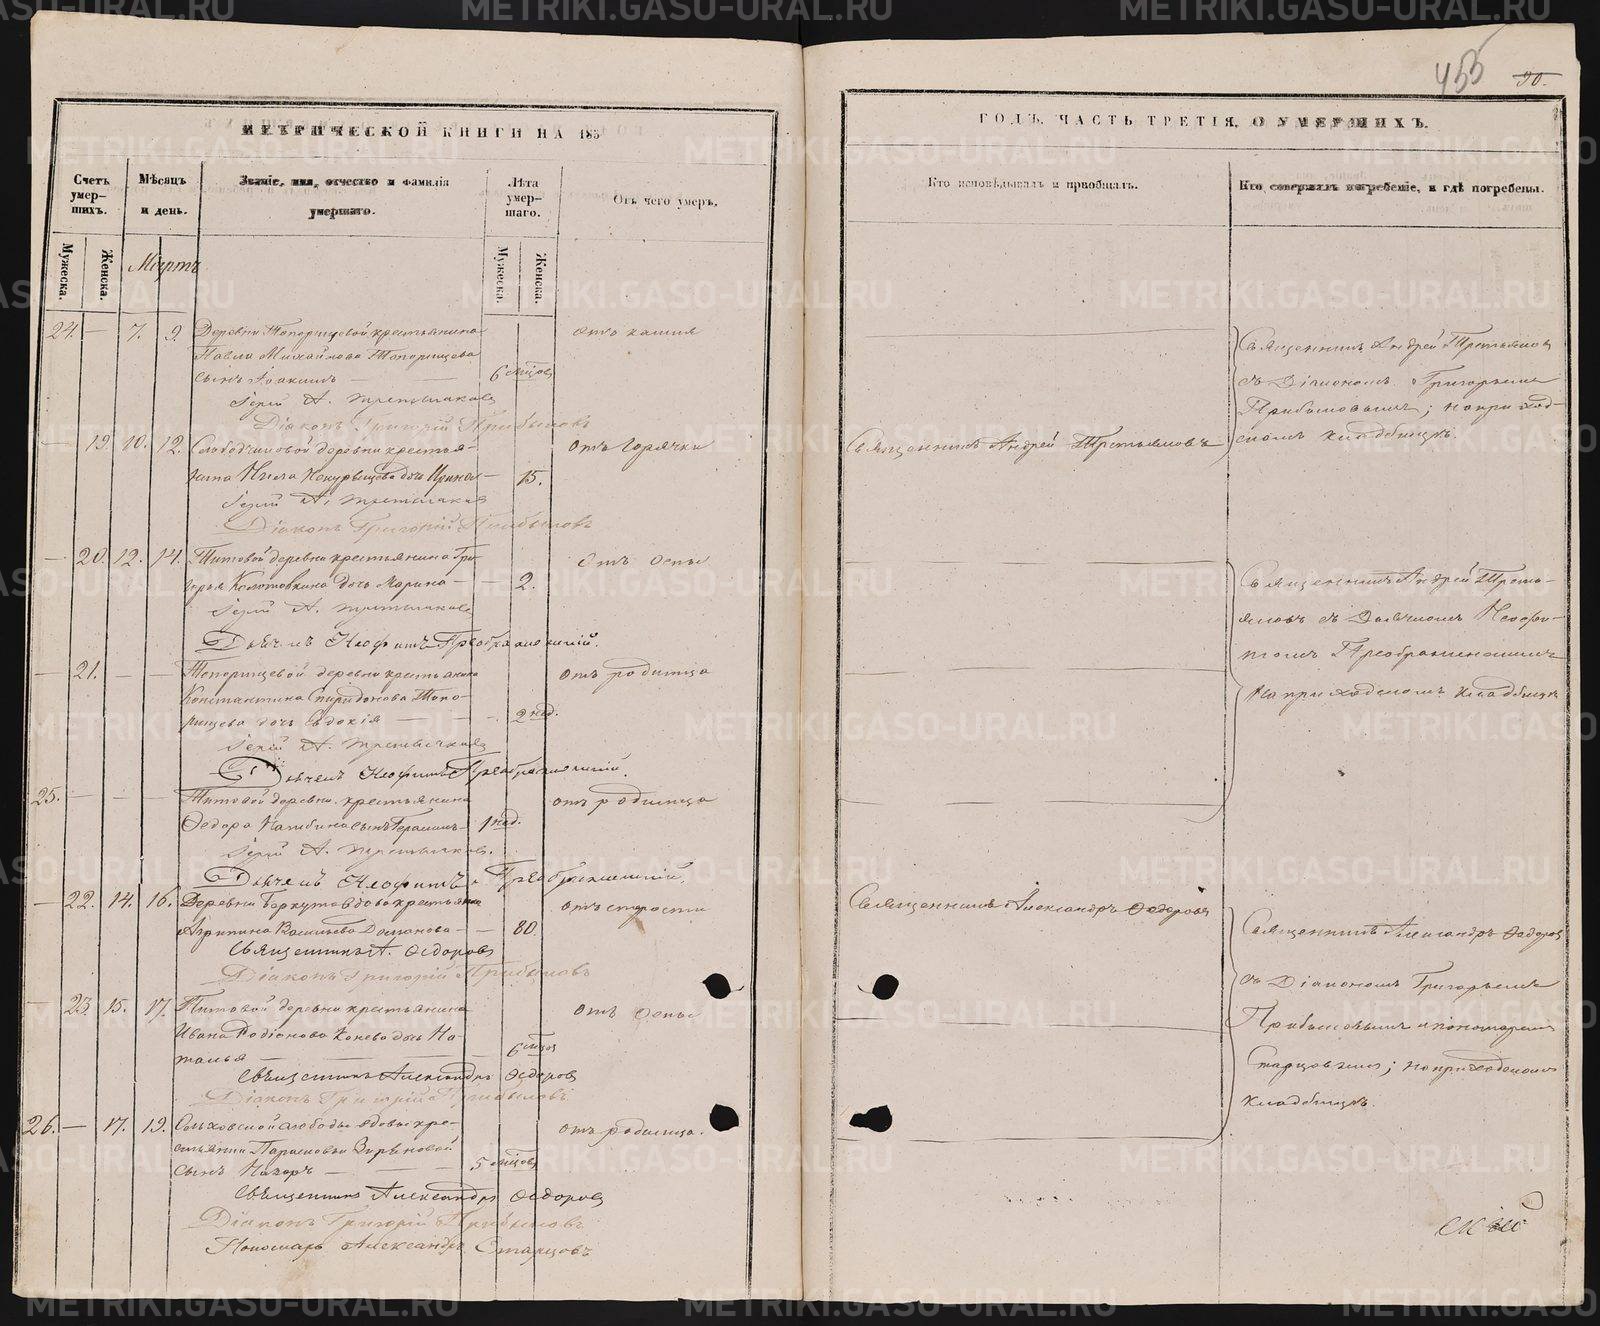 МЕТРИЧЕСКОЙ КНИГИ НА 185
Счетъ умер-шихъ.
Мѣсяцъ и день.
Званіе, имя, отчество и фамилія умершаго.
Лѣта умер-шаго.
Отъ чего умеръ.
Мужеска.
Женска.
Мартъ
Мужеска.
Женска.
24. — 7. 9. Деревни Топорищевой крестьянина отъ кашля
Павла Михайлова Топорищева
сынъ Іоакимъ — — 6 мѣсцовъ
Іерей А. Третьяковъ
Діаконъ Григорій Прибыловъ
— 19. 10. 12. Слободчиковой деревни крестья- отъ горячки
нина дочь Ирина — 15.
Іерей А. Третьяковъ
Діаконъ Григорій Прибыловъ
— 20. 12. 14. Титовой деревни крестьянина Гри- отъ оспы
горья Колотовкина дочь Марина — — 2.
Іерей А. Третьяковъ
Дьячекъ Неофитъ Преображенскій.
— 21. — — Топорищевой деревни крестьянина отъ родимца
Константина Спиридонова Топо-
рищева дочь Евдокія — — 2 нед.
Іерей А. Третьяковъ
Дьячекъ Неофитъ Преображенскій.
25. — — — Титовой деревни крестьянина отъ родимца
Ѳедора сынъ Герасимъ — 1 нед.
Іерей А. Третьяковъ.
Дьячекъ Неофитъ Преображенскій.
— 22. 14. 16. Деревни вдова крестьянка отъ старости
Агрипина Васильева — — 80.
Священникъ А. Ѳедоровъ
Діаконъ Григорій Прибыловъ
— 23. 15. 17. Титовой деревни крестьянина отъ оспы
Ивана Родіонова Конева дочь На-
талья — — 6 мѣсцов
Священникъ Александръ Ѳедоровъ
Діаконъ Григорій Прибыловъ
26. — 17. 19. слободы вдовы кре- отъ родимца.
стьянки Парасковьи Зыряновой
сынъ Назаръ — — 5 мѣсцовъ
Священникъ Александръ Ѳедоровъ
Діаконъ Григорій Прибыловъ
Пономарь Александръ Старцовъ
455 90.
ГОДЪ, ЧАСТЬ ТРЕТІЯ, О УМЕРШИХЪ.
Кто исповѣдывалъ и пріобщалъ.
Кто совершалъ погребеніе, и гдѣ погребены.
Священникъ Андрей Третьяковъ
съ Діакономъ Григорьемъ
Прибыловымъ; на приход-
скомъ кладбищѣ.
Священникъ Андрей Третьяковъ
Священникъ Андрей Треть-
яковъ съ Дьячкомъ Неофи-
томъ Преображенскимъ
на приходскомъ кладбищѣ
Священникъ Александръ Ѳедоровъ
Священникъ Александръ Ѳедоровъ
съ Діакономъ Григорьемъ
Прибыловымъ и пономаремъ
Старцовымъ; на приходскомъ
кладбищѣ.
METRIKI.GASO-URAL.RU